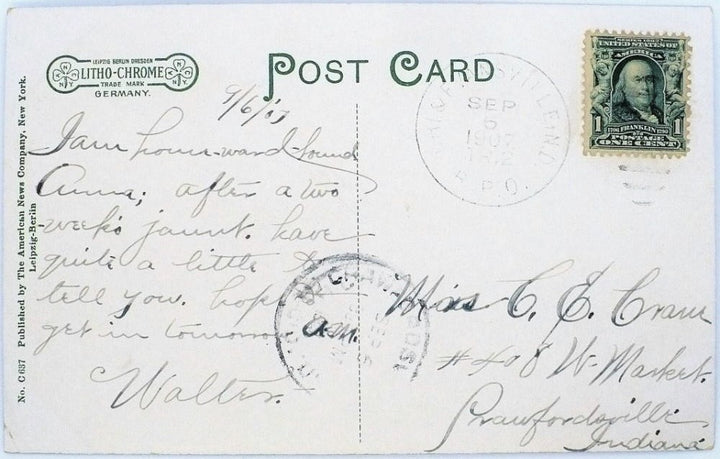 LEIPZIG BERLIN DRESDEN
LITHO-CHROME
TRADE MARK
GERMANY.
POST CARD
No. C637 Published by The American News Company, New York.
Leipzig-Berlin
9/6/07
I am home-ward-bound
Anna; after a two
weeks jaunt. have
quite a little to
tell you. hope
get in tomorrow
a.m.
Walter.
SEP
6
1907
R.P.O.
SERIES 1902
UNITED STATES OF
AMERICA
1706 FRANKLIN 1790
1 POSTAGE 1
ONE CENT
Miss C. E. Cram
#408 W. Market.
Crawfordsville
Indiana